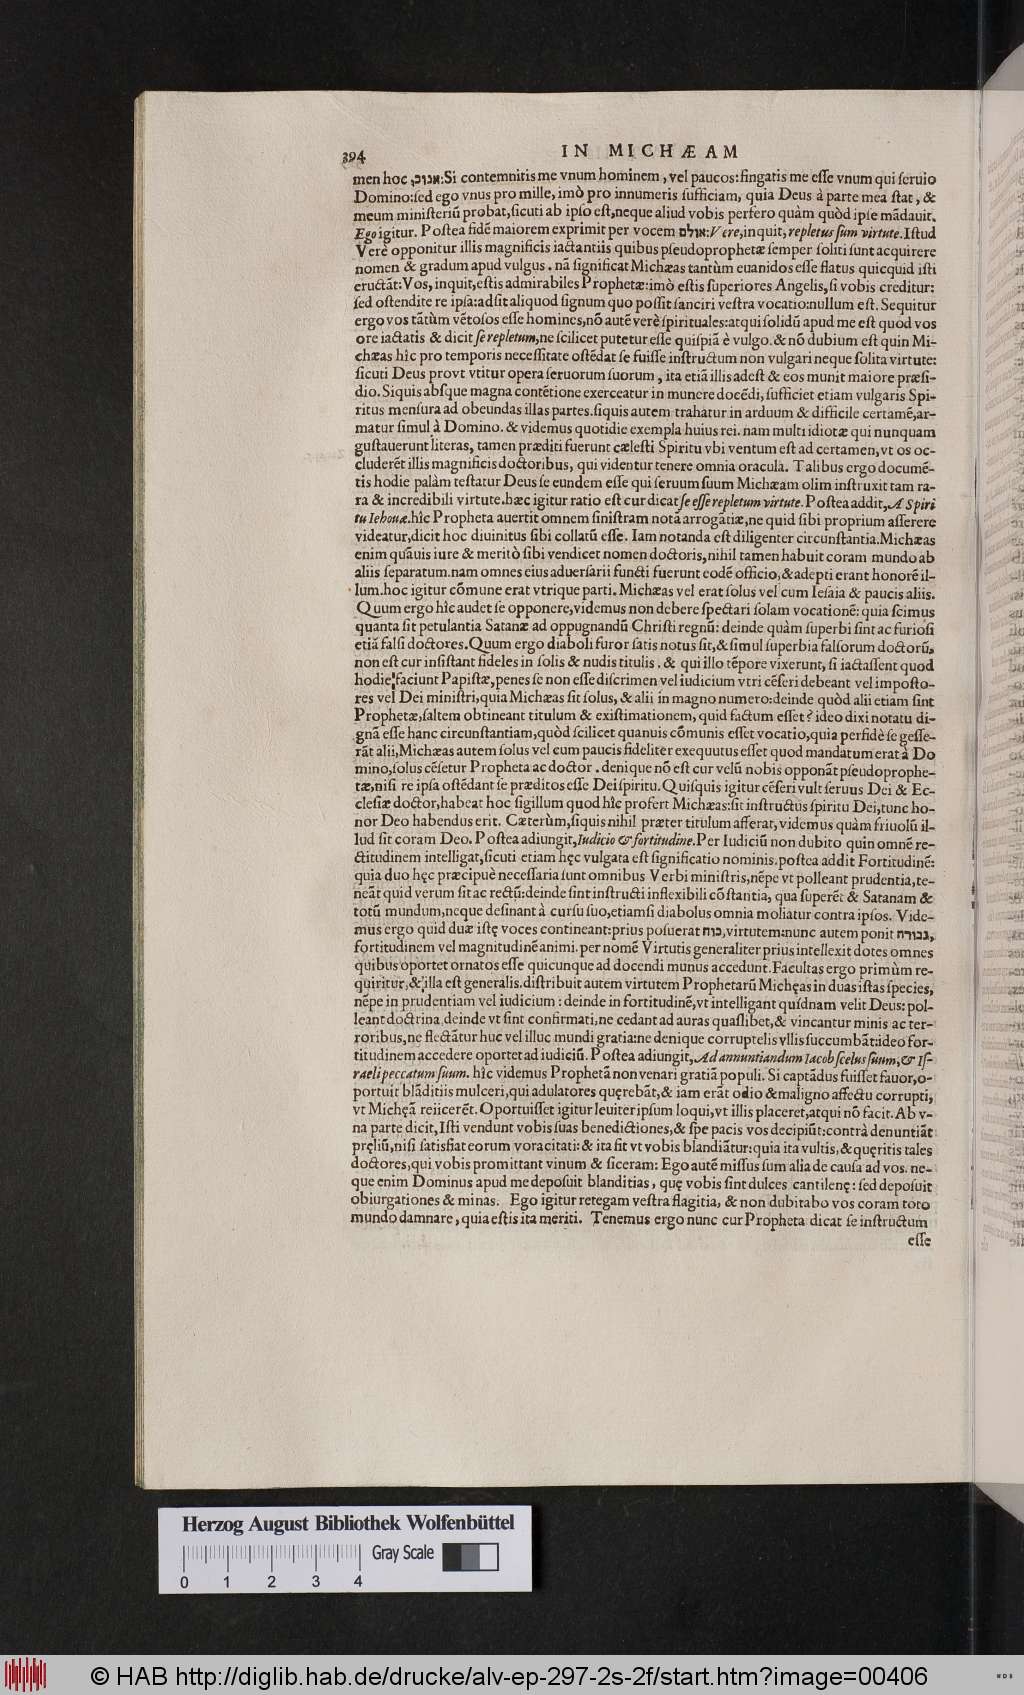 394
IN MICHÆAM
men hoc אנוכי,:Si contemnitis me vnum hominem, vel paucos: fingatis me eſſe vnum qui ſeruio
Domino: ſed ego vnus pro mille, imò pro innumeris ſufficiam, quia Deus à parte mea ſtat, &
meum miniſteriũ probat, ſicuti ab ipſo eſt, neque aliud vobis perfero quàm quòd ipſe mãdauit.
Ego igitur. Poſtea fidẽ maiorem exprimit per vocem אולם: Vere, inquit, repletus ſum virtute. Iſtud
Verè opponitur illis magnificis iactantiis quibus pſeudoprophetæ ſemper ſoliti ſunt acquirere
nomen & gradum apud vulgus. nã ſignificat Michæas tantùm euanidos eſſe flatus quicquid iſti
eructãt: Vos, inquit, eſtis admirabiles Prophetæ: imò eſtis ſuperiores Angelis, ſi vobis creditur:
ſed oſtendite re ipſa: adſit aliquod ſignum quo poſſit ſanciri veſtra vocatio: nullum eſt. Sequitur
ergo vos tãtùm vẽtoſos eſſe homines, nõ autẽ verè ſpirituales: atqui ſolidũ apud me eſt quod vos
ore iactatis & dicit ſe repletum, ne ſcilicet putetur eſſe quiſpiã è vulgo. & nõ dubium eſt quin Mi-
chæas hîc pro temporis neceſſitate oſtẽdat ſe fuiſſe inſtructum non vulgari neque ſolita virtute:
ſicuti Deus prout vtitur opera ſeruorum ſuorum, ita etiã illis adeſt & eos munit maiore præſi-
dio. Siquis abſque magna contẽtione exerceatur in munere docẽdi, ſufficiet etiam vulgaris Spi-
ritus menſura ad obeundas illas partes. ſiquis autem trahatur in arduum & difficile certamẽ, ar-
matur ſimul à Domino. & videmus quotidie exempla huius rei. nam multi idiotæ qui nunquam
guſtauerunt literas, tamen præditi fuerunt cæleſti Spiritu vbi ventum eſt ad certamen, vt os oc-
cluderẽt illis magnificis doctoribus, qui videntur tenere omnia oracula. Talibus ergo documẽ-
tis hodie palàm teſtatur Deus ſe eundem eſſe qui ſeruum ſuum Michæam olim inſtruxit tam ra-
ra & incredibili virtute. hæc igitur ratio eſt cur dicat ſe eſſe repletum virtute. Poſtea addit, A Spiri
tu Iehouæ. hîc Propheta auertit omnem ſiniſtram notã arrogãtiæ, ne quid ſibi proprium aſſerere
videatur, dicit hoc diuinitus ſibi collatũ eſſe. Iam notanda eſt diligenter circunſtantia. Michæas
enim quãuis iure & meritò ſibi vendicet nomen doctoris, nihil tamen habuit coram mundo ab
aliis ſeparatum. nam omnes eius aduerſarii functi fuerunt eodẽ officio, & adepti erant honorẽ il-
lum. hoc igitur cõmune erat vtrique parti. Michæas vel erat ſolus vel cum Ieſaia & paucis aliis.
Quum ergo hîc audet ſe opponere, videmus non debere ſpectari ſolam vocationẽ: quia ſcimus
quanta ſit petulantia Satanæ ad oppugnandũ Chriſti regnũ: deinde quàm ſuperbi ſint ac furioſi
etiã falſi doctores. Quum ergo diaboli furor ſatis notus ſit, & ſimul ſuperbia falſorum doctorũ,
non eſt cur inſiſtant fideles in ſolis & nudis titulis. & qui illo tẽpore vixerunt, ſi iactaſſent quod
hodie faciunt Papiſtæ, penes ſe non eſſe diſcrimen vel iudicium vtri cẽſeri debeant vel impoſto-
res vel Dei miniſtri, quia Michæas ſit ſolus, & alii in magno numero: deinde quòd alii etiam ſint
Prophetæ, ſaltem obtineant titulum & exiſtimationem, quid factum eſſet? ideo dixi notatu di-
gnã eſſe hanc circunſtantiam, quòd ſcilicet quanuis cõmunis eſſet vocatio, quia perfidè ſe geſſe-
rãt alii, Michæas autem ſolus vel cum paucis fideliter exequutus eſſet quod mandatum erat à Do
mino, ſolus cẽſetur Propheta ac doctor. denique nõ eſt cur velũ nobis opponãt pſeudoprophe-
tæ, niſi re ipſa oſtẽdant ſe præditos eſſe Dei ſpiritu. Quiſquis igitur cẽſeri vult ſeruus Dei & Ec-
cleſiæ doctor, habeat hoc ſigillum quod hîc profert Michæas: ſit inſtructus ſpiritu Dei, tunc ho-
nor Deo habendus erit. Cæterùm, ſiquis nihil præter titulum afferat, videmus quàm friuolũ il-
lud ſit coram Deo. Poſtea adiungit, Iudicio & fortitudine. Per Iudiciũ non dubito quin omnẽ re-
ctitudinem intelligat, ſicuti etiam hęc vulgata eſt ſignificatio nominis. poſtea addit Fortitudinẽ:
quia duo hęc præcipuè neceſſaria ſunt omnibus Verbi miniſtris, nẽpe vt polleant prudentia, te-
neãt quid verum ſit ac rectũ: deinde ſint inſtructi inflexibili cõſtantia, qua ſuperẽt & Satanam &
totũ mundum, neque deſinant à curſu ſuo, etiamſi diabolus omnia moliatur contra ipſos. Vide-
mus ergo quid duæ iſtę voces contineant: prius poſuerat כוח, virtutem: nunc autem ponit גבורה,
fortitudinem vel magnitudinẽ animi. per nomẽ Virtutis generaliter prius intellexit dotes omnes
quibus oportet ornatos eſſe quicunque ad docendi munus accedunt. Facultas ergo primùm re-
quiritur, & illa eſt generalis. diſtribuit autem virtutem Prophetarũ Michęas in duas iſtas ſpecies,
nẽpe in prudentiam vel iudicium: deinde in fortitudinẽ, vt intelligant quidnam velit Deus: pol-
leant doctrina. deinde vt ſint confirmati, ne cedant ad auras quaſlibet, & vincantur minis ac ter-
roribus, ne flectãtur huc vel illuc mundi gratia: ne denique corruptelis vllis ſuccumbãt: ideo for-
titudinem accedere oportet ad iudiciũ. Poſtea adiungit, Ad annuntiandum Iacob ſcelus ſuum, & Iſ-
raeli peccatum ſuum. hîc videmus Prophetã non venari gratiã populi. Si captãdus fuiſſet fauor, o-
portuit blãditiis mulceri, qui adulatores quęrebãt, & iam erãt odio & maligno affectu corrupti,
vt Michęã reiicerẽt. Oportuiſſet igitur leuiter ipſum loqui, vt illis placeret, atqui nõ facit. Ab v-
na parte dicit, Iſti vendunt vobis ſuas benedictiones, & ſpe pacis vos decipiũt: contrà denuntiãt
pręliũ, niſi ſatisfiat eorum voracitati: & ita fit vt vobis blandiãtur: quia ita vultis, & quęritis tales
doctores, qui vobis promittant vinum & ſiceram: Ego autẽ miſſus ſum alia de cauſa ad vos. ne-
que enim Dominus apud me depoſuit blanditias, quę vobis ſint dulces cantilenę: ſed depoſuit
obiurgationes & minas. Ego igitur retegam veſtra flagitia, & non dubitabo vos coram toto
mundo damnare, quia eſtis ita meriti. Tenemus ergo nunc cur Propheta dicat ſe inſtructum
eſſe
Herzog August Bibliothek Wolfenbüttel
Gray Scale
0 1 2 3 4
© HAB http://diglib.hab.de/drucke/alv-ep-297-2s-2f/start.htm?image=00406